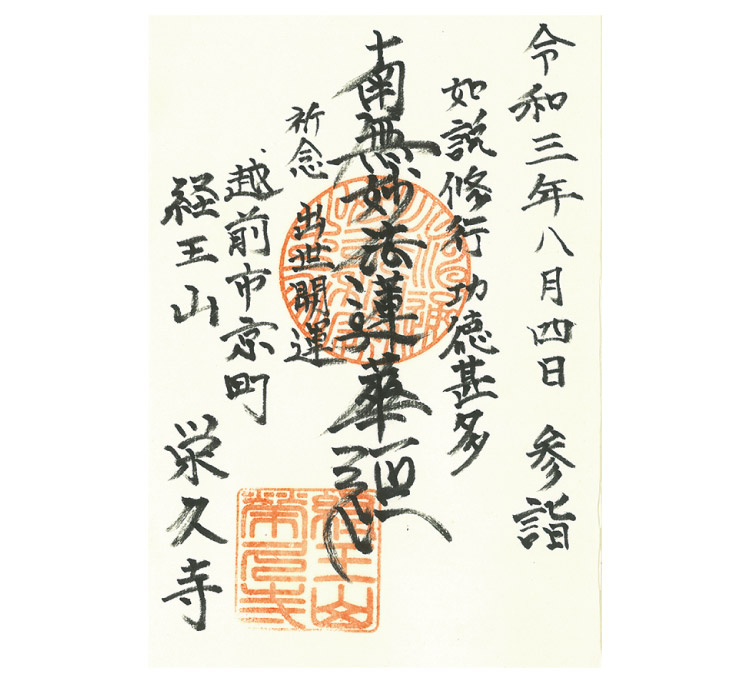 令和三年八月四日 参詣
如説修行功徳甚多
南無妙法蓮華経
祈念 出世開運
越前市京町
経王山 栄久寺
經王山
榮久寺